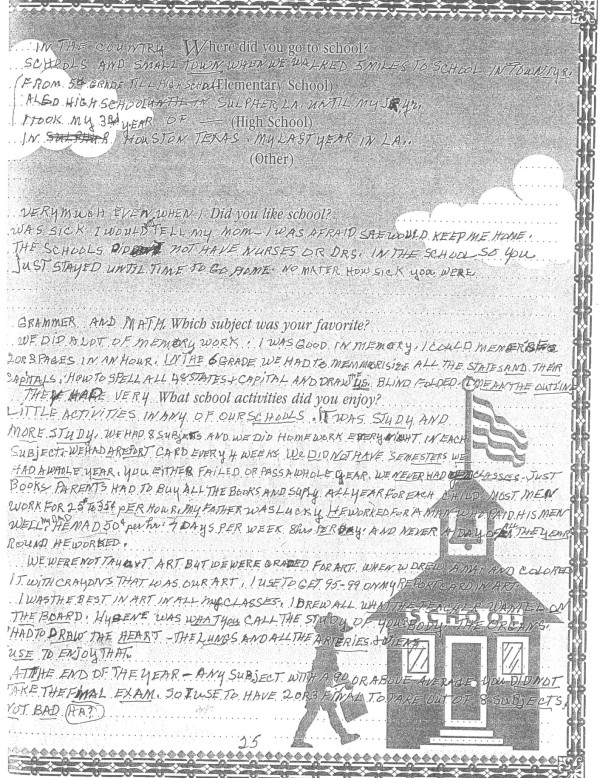 IN THE COUNTRY Where did you go to school?
SCHOOLS AND SMALL TOWN WHEN WE WALKED 3 MILES TO SCHOOL IN TOWN
(FROM 5th GRADE TILL HIGH School (Elementary School)
ALSO HIGH SCHOOL IN SULPHER, LA. UNTIL MY yr.
I TOOK MY 3rd YEAR OF — (High School)
IN HOUSTON TEXAS. MY LAST YEAR IN LA..
(Other)
VERY MUCH EVEN WHEN I Did you like school?
WAS SICK. I WOULD TELL MY MOM — I WAS AFRAID SHE WOULD KEEP ME HOME.
THE SCHOOLS DID NOT HAVE NURSES OR DRS. IN THE SCHOOL SO YOU
JUST STAYED UNTIL TIME TO GO HOME. NO MATER HOW SICK YOU WERE
GRAMMER AND MATH. Which subject was your favorite?
WE DID A LOT OF MEMORY WORK. I WAS GOOD IN MEMORY. I COULD
2 OR 3 PAGES IN AN HOUR. IN THE 6 GRADE WE HAD TO MEMMORISIZE ALL THE STATES AND THEIR
CAPITALS. HOW TO SPELL ALL 48 STATES + CAPITAL AND DRAW THE US. BLIND FOLDED. I MEAN THE OUTLINE
THEY HAD VERY What school activities did you enjoy?
LITTLE ACTIVITIES IN ANY OF OUR SCHOOLS. IT WAS STUDY AND
MORE STUDY. WE HAD 8 SUBJECTS AND WE DID HOMEWORK EVERY NIGHT IN EACH
SUBJECT. WE HAD A REPORT CARD EVERY 4 WEEKS. WE DID NOT HAVE SEMESTERS WE
HAD A WHOLE YEAR. YOU EITHER FAILED OR PASS A WHOLE YEAR. WE NEVER HAD CLASSES. JUST
BOOKS PARENTS HAD TO BUY ALL THE BOOKS AND SUPLY ALL YEAR FOR EACH CHILD. MOST MEN
WORK FOR 25¢ TO 35¢ PER HOUR. MY FATHER WAS LUCKY. HE WORKED FOR A MAN WHO PAID HIS MEN
WELL. 50¢ per hr. 7 DAYS PER WEEK 8hrs PER DAY. AND NEVER A DAY OFF ALL THE YEAR
ROUND HE WORKED.
WE WERE NOT TAUGHT ART BUT WE WERE GRADED FOR ART. WHEN WE DREW A MAP AND COLORED
IT WITH CRAYONS THAT WAS OUR ART. I USE TO GET 95-99 ON MY REPORT CARD IN ART
I WAS THE BEST IN ART IN ALL MY CLASSES. I DREW ALL WHAT THE TEACHER WANTED ON
THE BOARD. HYGENE WAS WHAT YOU CALL THE STUDY OF YOUR BODY - THE ORGANS.
HAD TO DRAW THE HEART - THE LUNGS AND ALL THE ARTERIES + VIENS
USE TO ENJOY THAT.
AT THE END OF THE YEAR - ANY SUBJECT WITH A 90 OR ABOVE AVERAGE YOU DID NOT
TAKE THE FINAL EXAM. SO I USE TO HAVE 2 OR 3 FINAL TO TAKE OUT OF 8 SUBJECTS,
NOT BAD HA?
25